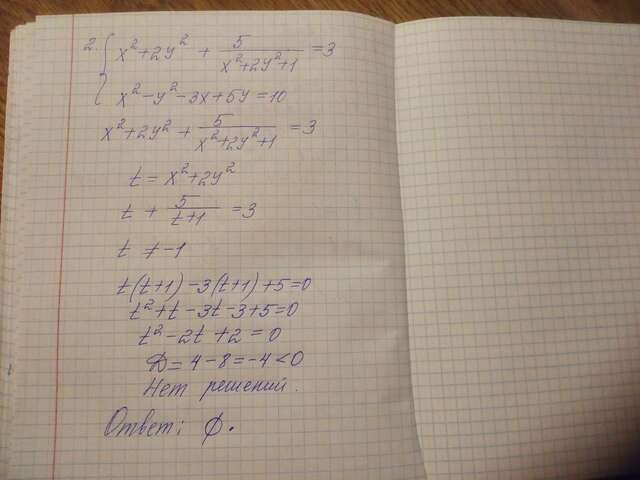 2. { x² + 2y² + 5/(x² + 2y² + 1) = 3
x² - y² - 3x + 5y = 10
x² + 2y² + 5/(x² + 2y² + 1) = 3
t = x² + 2y²
t + 5/(t+1) = 3
t ≠ -1
t(t+1) - 3(t+1) + 5 = 0
t² + t - 3t - 3 + 5 = 0
t² - 2t + 2 = 0
D = 4 - 8 = -4 < 0
Нет решений.
Ответ: ∅.